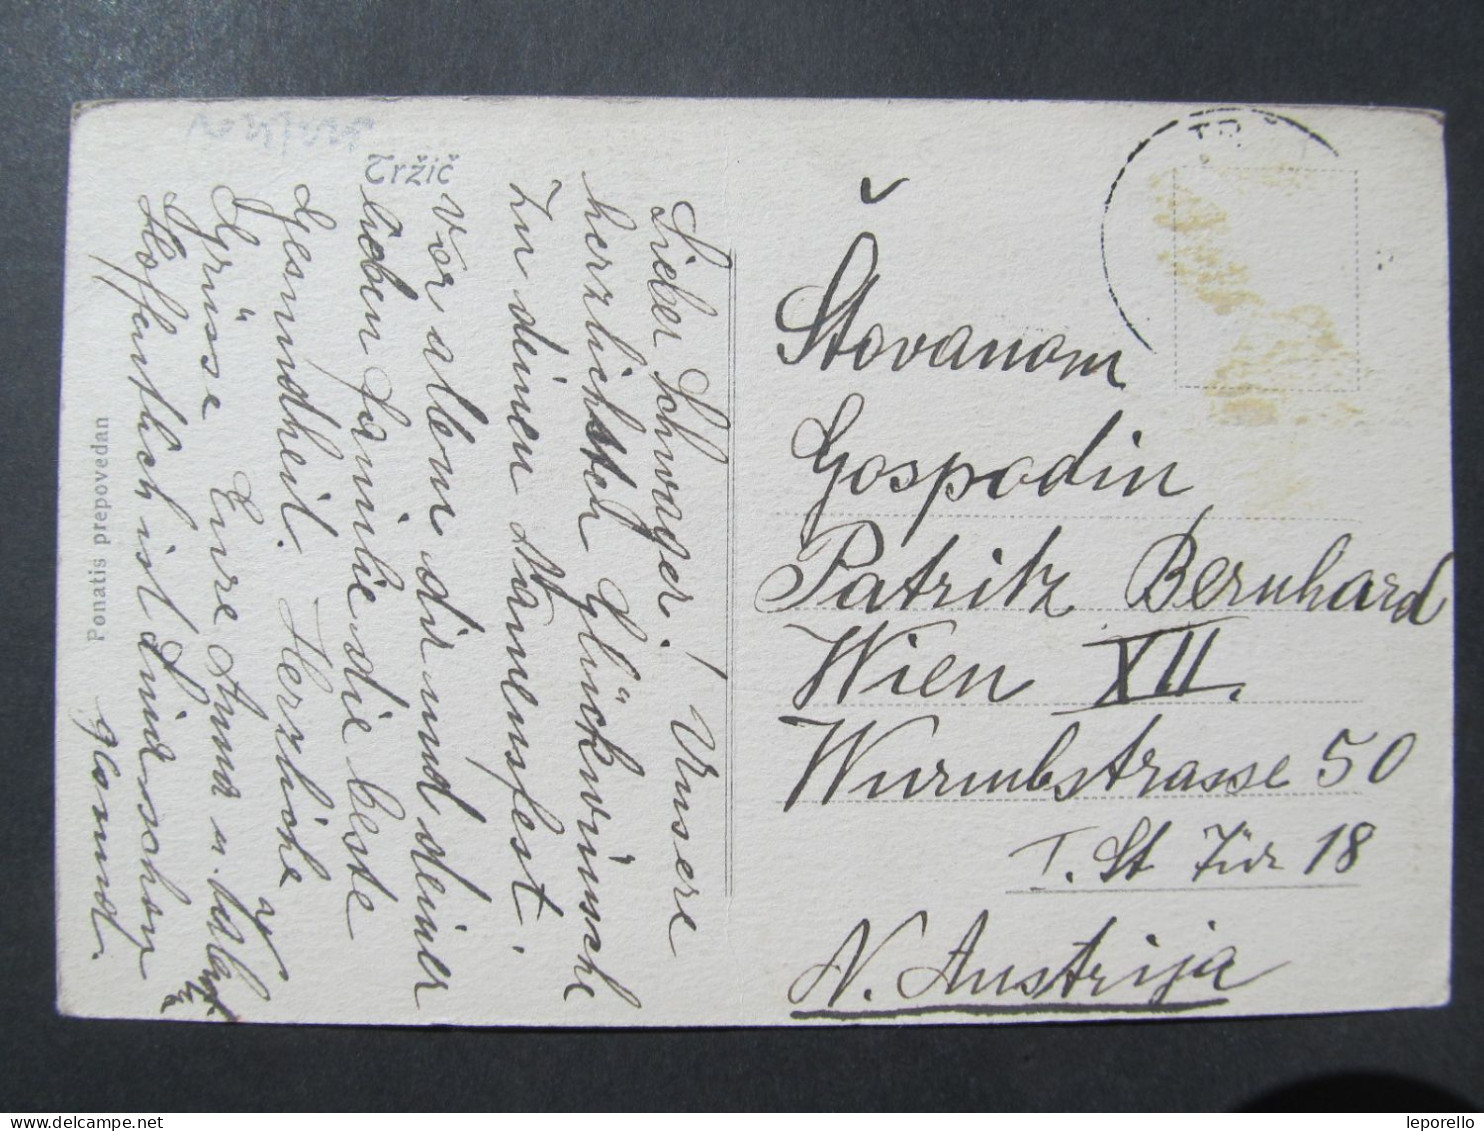 Tržič
Lieber Schwager! Unsere
herzlichsten Glückwünsche
zu deinen Namensfest.
Vor allem dir und deiner
lieben Familie die beste
Gesundheit. Herzliche
Grüsse Eure Anna u.
Hoffentlich ist Luia schon
gesund.
Ponatis prepovedan
Štovanom
Gospodin
Patritz Bernhard
Wien XII.
Wurmbstrasse 50
I. St Tür 18
N. Austrija
leporello